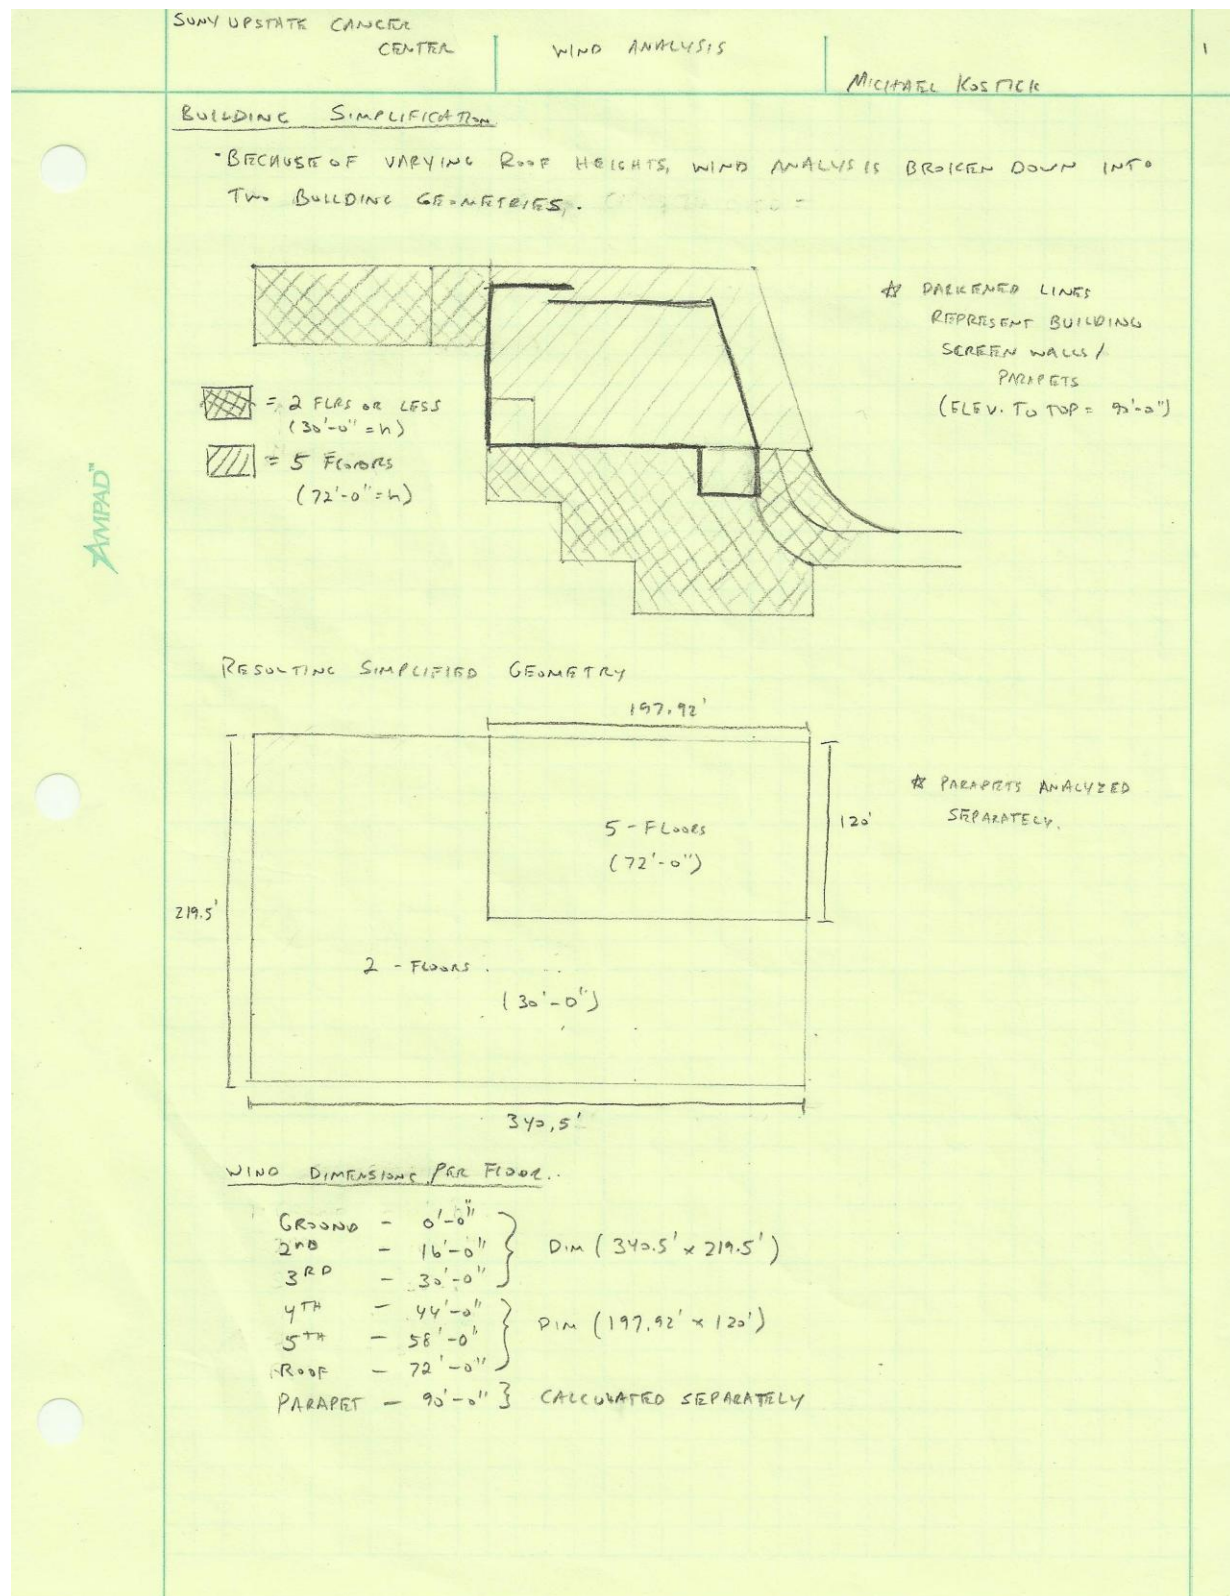 SUNY UPSTATE CANCER
CENTER
WIND ANALYSIS
MICHAEL KOSTICK
1
BUILDING SIMPLIFICATION
·BECAUSE OF VARYING ROOF HEIGHTS, WIND ANALYSIS BROKEN DOWN INTO
TWO BUILDING GEOMETRIES.
☆ DARKENED LINES
REPRESENT BUILDING
SCREEN WALLS /
PARAPETS
(ELEV. TO TOP = 90'-0")
= 2 FLRS OR LESS
(30'-0" = h)
= 5 FLOORS
(72'-0" = h)
AMPAD™
RESULTING SIMPLIFIED GEOMETRY
197.92'
☆ PARAPETS ANALYZED
SEPARATELY.
5 - FLOORS
(72'-0")
120'
219.5'
2 - FLOORS
(30'-0")
340.5'
WIND DIMENSIONS PER FLOOR.
GROUND - 0'-0"
2ND - 16'-0" } DIM (340.5' x 219.5')
3RD - 30'-0"
4TH - 44'-0"
5TH - 58'-0" } DIM (197.92' x 120')
ROOF - 72'-0"
PARAPET - 90'-0" } CALCULATED SEPARATELY